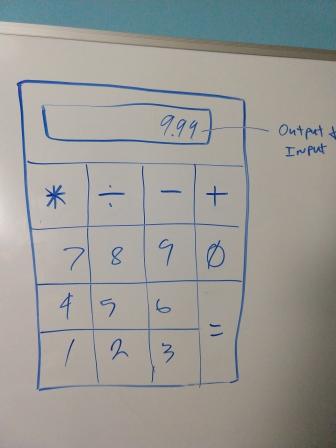 9.99
Output &
Input
* ÷ - +
7 8 9 0
4 5 6
=
1 2 3